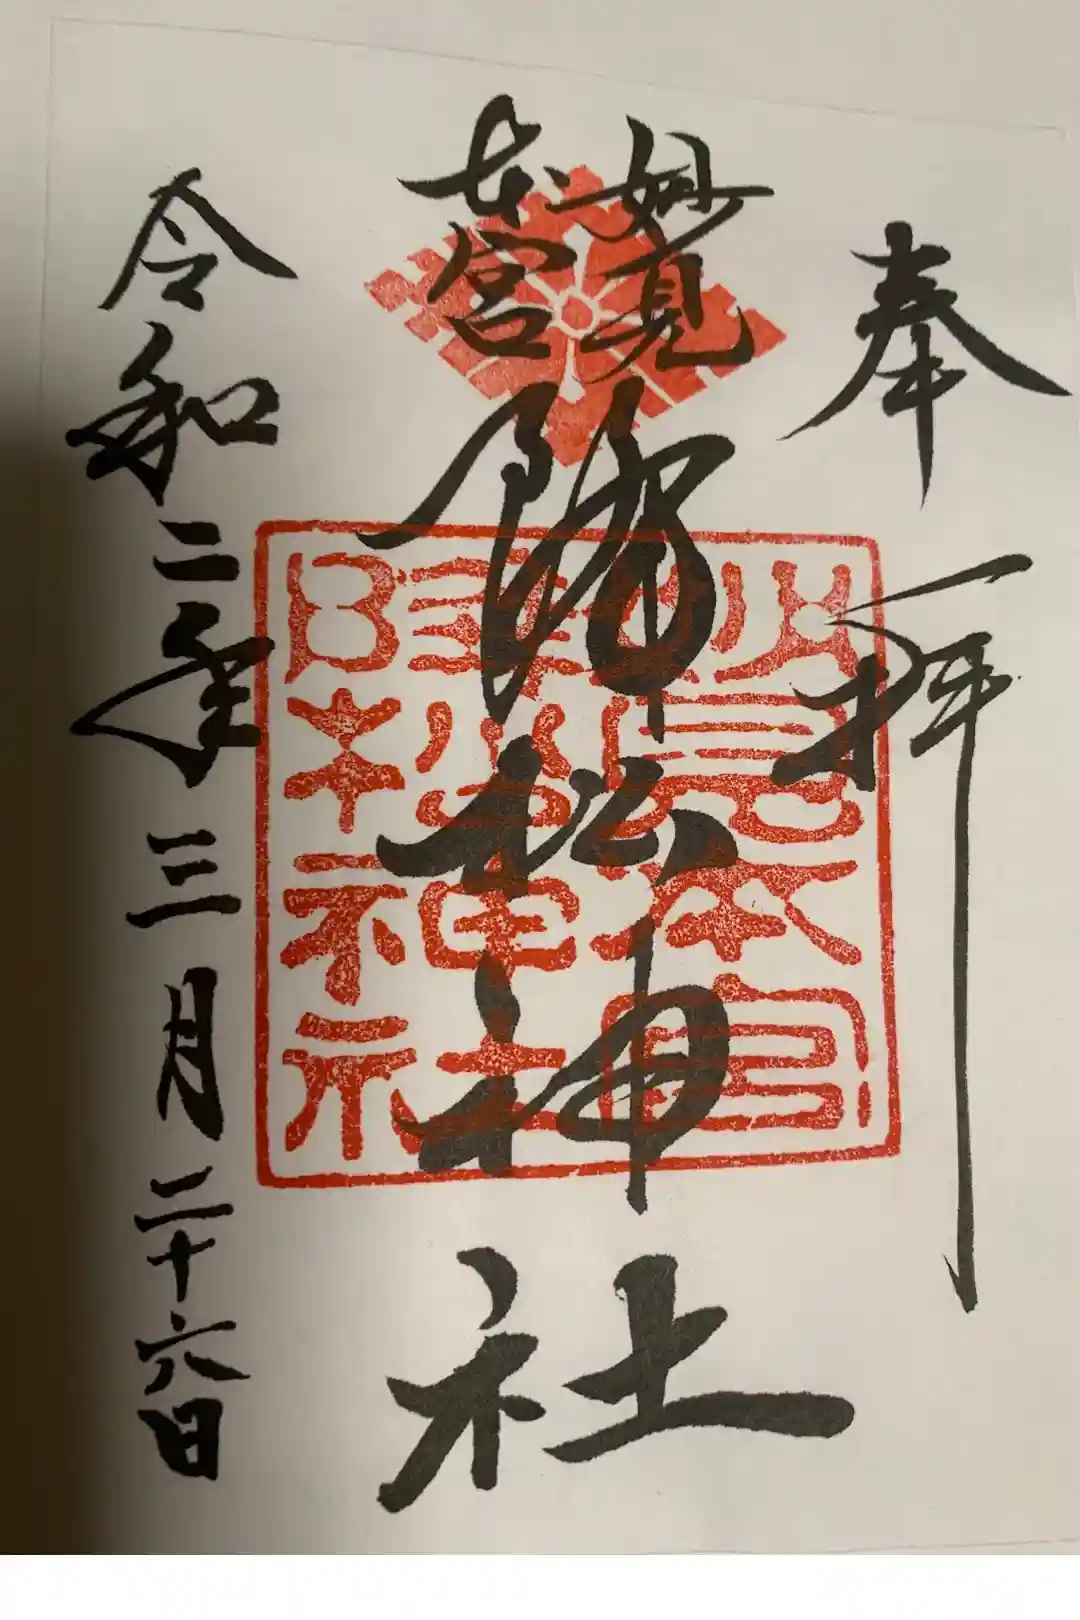 奉拝
妙見
本宮
降松神社
令和二年三月二十六日
妙見本宮
降松神社